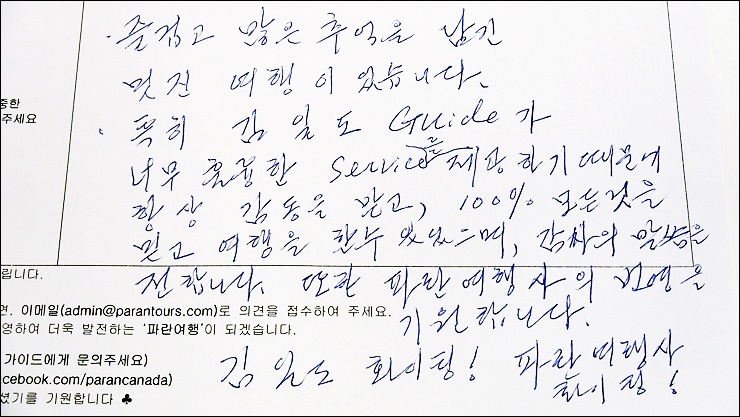 · 즐겁고 많은 추억을 남긴
멋진 여행이 었습니다.
· 특히 김일도 Guide가
너무 훌륭한 Service를 제공하기 때문에
항상 감동을 받고, 100% 모든것을
믿고 여행을 할수 있었으며, 감사의 말씀을
전합니다. 또한 파란여행사의 번영을
기원합니다.
김일도 화이팅! 파란여행사
화이팅!
중한
주세요
립니다.
면, 이메일(admin@parantours.com)로 의견을 접수하여 주세요.
영하여 더욱 발전하는 '파란여행'이 되겠습니다.
가이드에게 문의주세요)
cebook.com/parancanada)
셨기를 기원합니다 ♣